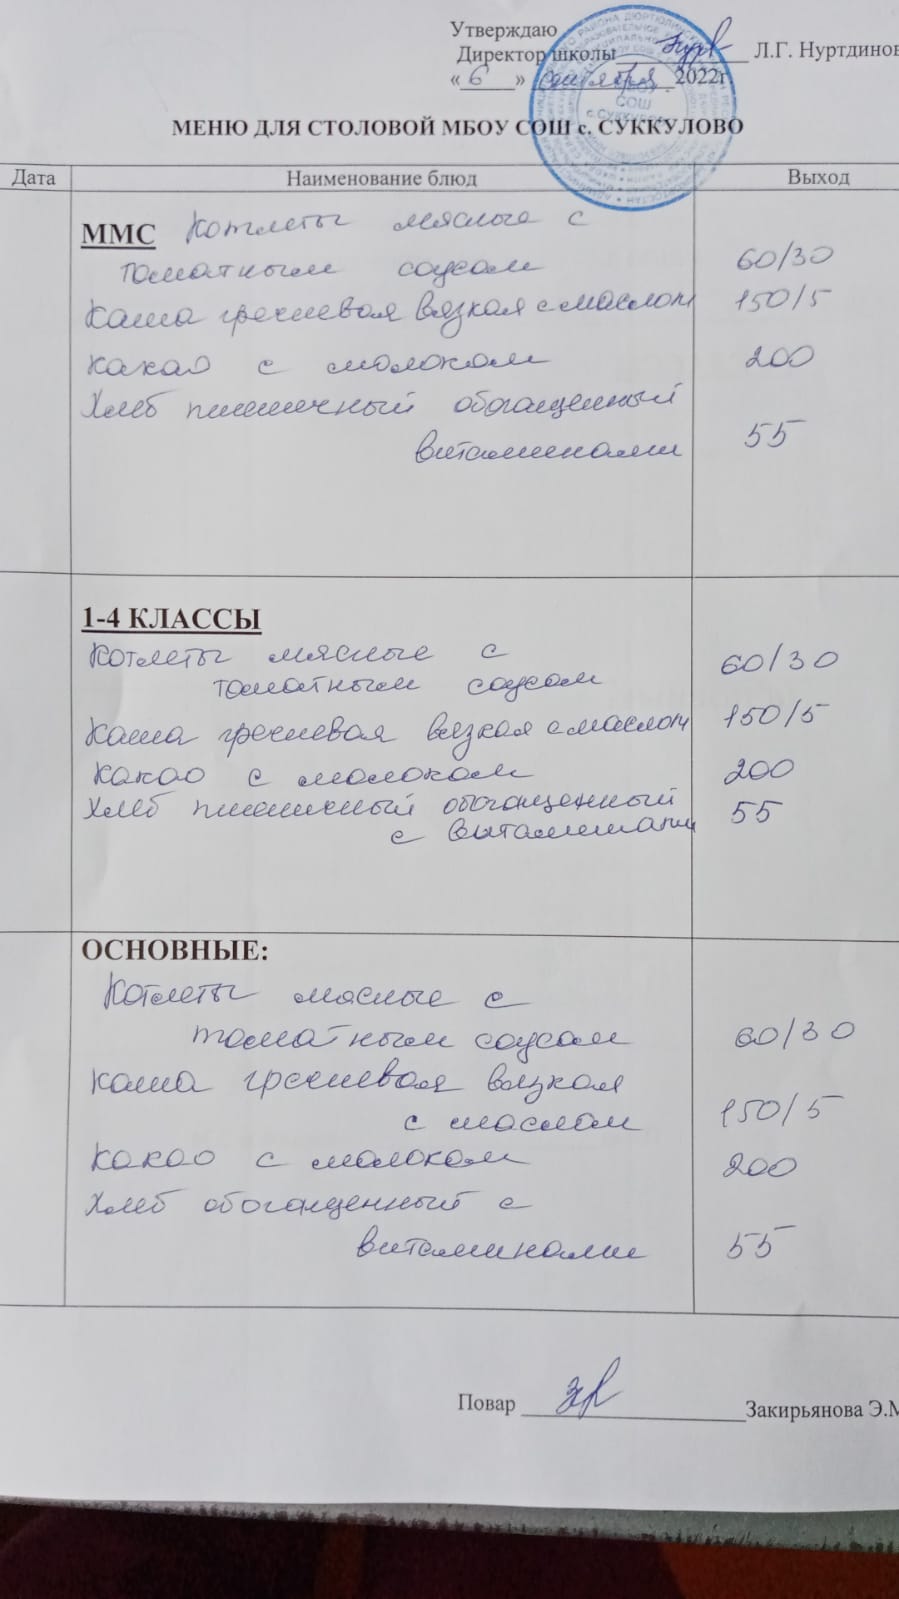 Утверждаю
Директор школы Л.Г. Нуртдинов
« 6 » сентября 2022г.
СОШ
с. СУККУЛОВО
МЕНЮ ДЛЯ СТОЛОВОЙ МБОУ СОШ с. СУККУЛОВО
Дата Наименование блюд Выход
ММС Котлеты мясные с
томатным соусом 60/30
Каша гречневая вязкая с маслом 150/5
Какао с молоком 200
Хлеб пшеничный обогащенный
витаминами 55
1-4 КЛАССЫ
Котлеты мясные с
томатным соусом 60/30
Каша гречневая вязкая с маслом 150/5
Какао с молоком 200
Хлеб пшеничный обогащенный 55
с вытаминами
ОСНОВНЫЕ:
Котлеты мясные с
томатным соусом 60/30
Каша гречневая вязкая
с маслом 150/5
Какао с молоком 200
Хлеб обогащенный с
витаминами 55
Повар Закирьянова Э.М